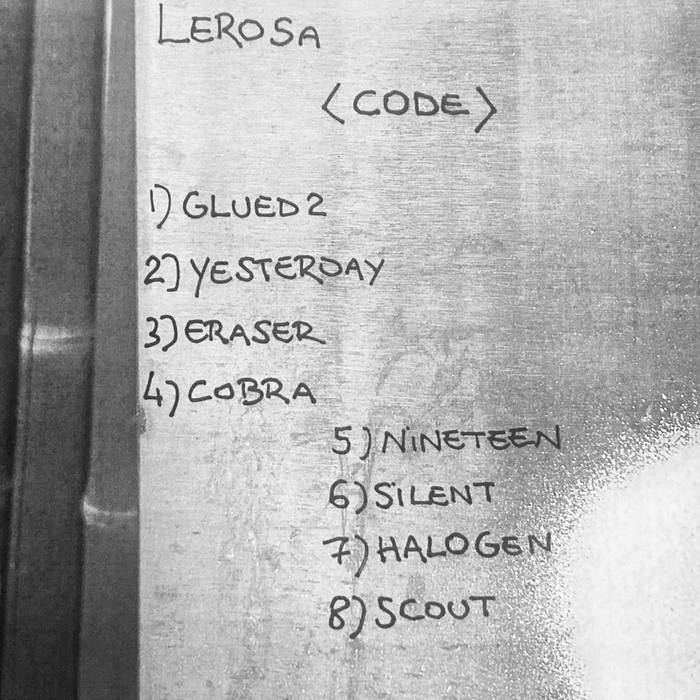 LEROSA
<CODE>
1) GLUED 2
2) YESTERDAY
3) ERASER
4) COBRA
5) NiNETEEN
6) SiLENT
7) HALOGEN
8) SCOUT